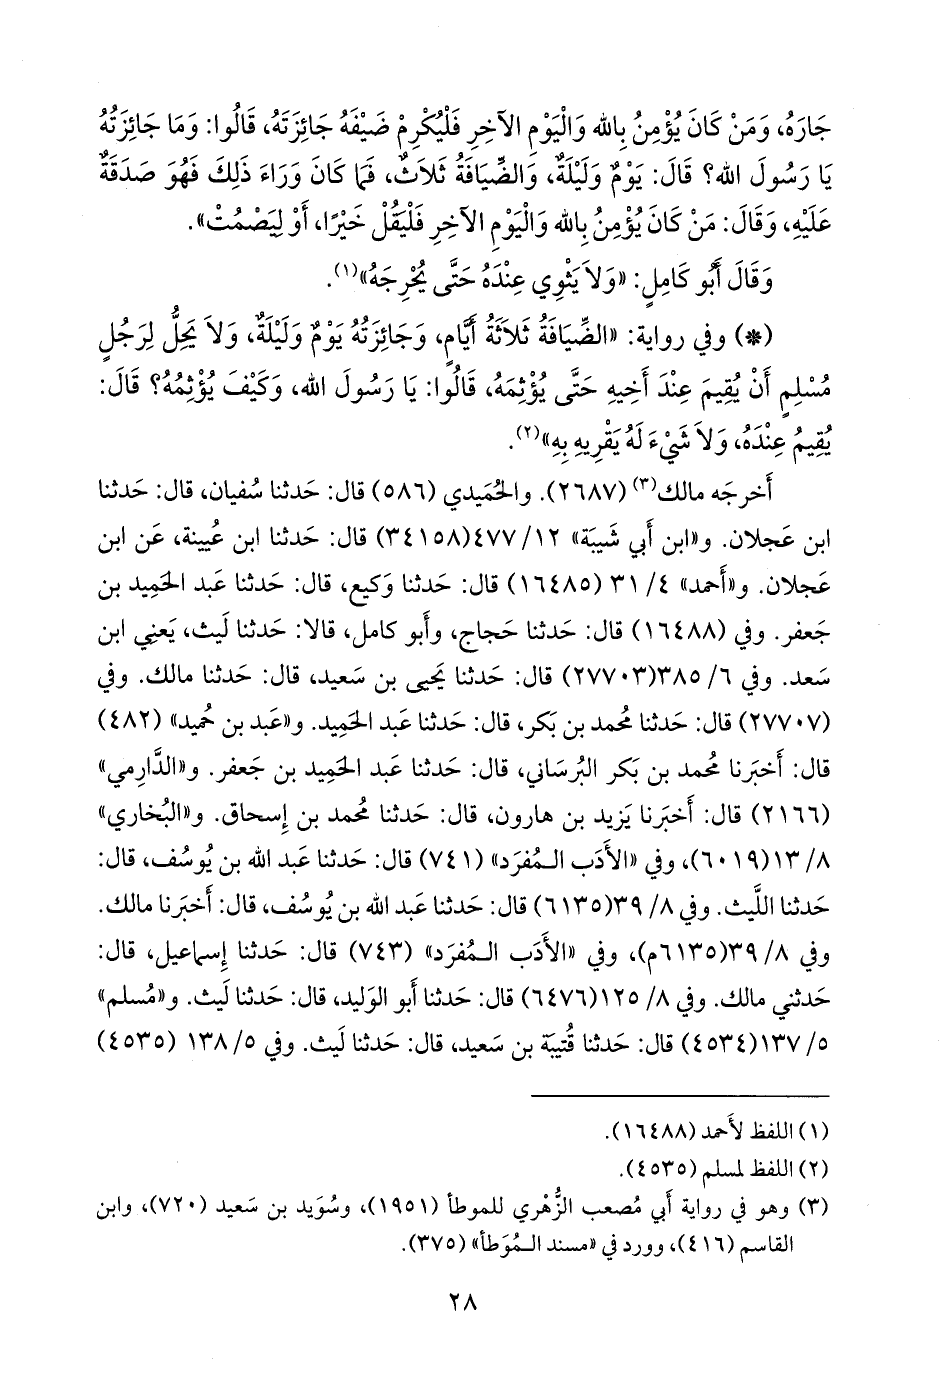 جَارَهُ، وَمَنْ كَانَ يُؤْمِنُ بِالله وَالْيَوْمِ الآخِرِ فَلْيُكْرِمْ ضَيْفَهُ جَائِزَتَهُ، قَالُوا: وَمَا جَائِزَتُهُ
يَا رَسُولَ الله؟ قَالَ: يَوْمٌ وَلَيْلَةٌ، وَالضِّيَافَةُ ثَلاَثٌ، فَمَا كَانَ وَرَاءَ ذَلِكَ فَهُوَ صَدَقَةٌ
عَلَيْهِ، وَقَالَ: مَنْ كَانَ يُؤْمِنُ بِالله وَالْيَوْمِ الآخِرِ فَلْيَقُلْ خَيْرًا، أَوْ لِيَصْمُتْ».
وَقَالَ أَبُو كَامِلٍ: «وَلاَ يَثْوِي عِنْدَهُ حَتَّى يُحْرِجَهُ»(١).
(*) وفي رواية: «الضِّيَافَةُ ثَلاَثَةُ أَيَّامٍ، وَجَائِزَتُهُ يَوْمٌ وَلَيْلَةٌ، وَلاَ يَحِلُّ لِرَجُلٍ
مُسْلِمٍ أَنْ يُقِيمَ عِنْدَ أَخِيهِ حَتَّى يُؤْثِمَهُ، قَالُوا: يَا رَسُولَ الله، وَكَيْفَ يُؤْثِمُهُ؟ قَالَ:
يُقِيمُ عِنْدَهُ، وَلاَ شَيْءَ لَهُ يَقْرِيهِ بِهِ»(٢).
أخرجَه مالك(٣) (٢٦٨٧). والحُمَيدي (٥٨٦) قال: حَدثنا سُفيان، قال: حَدثنا
ابن عَجلان. و«ابن أَبي شَيبَة» ١٢/ ٤٧٧(٣٤١٥٨) قال: حَدثنا ابن عُيينة، عَن ابن
عَجلان. و«أَحمد» ٤/ ٣١ (١٦٤٨٥) قال: حَدثنا وَكيع، قال: حَدثنا عَبد الحَمِيد بن
جَعفر. وفي (١٦٤٨٨) قال: حَدثنا حَجاج، وأَبو كامل، قالا: حَدثنا لَيث، يَعنِي ابن
سَعد. وفي ٦/ ٣٨٥(٢٧٧٠٣) قال: حَدثنا يَحيى بن سَعيد، قال: حَدثنا مالك. وفي
(٢٧٧٠٧) قال: حَدثنا مُحمد بن بَكر، قال: حَدثنا عَبد الحَمِيد. و«عَبد بن حُميد» (٤٨٢)
قال: أَخبَرنا مُحمد بن بَكر البُرساني، قال: حَدثنا عَبد الحَمِيد بن جَعفر. و«الدَّارِمي»
(٢١٦٦) قال: أَخبَرنا يَزيد بن هارون، قال: حَدثنا مُحمد بن إِسحاق. و«البُخاري»
٨/ ١٣(٦٠١٩)، وفي «الأَدَب الـمُفرَد» (٧٤١) قال: حَدثنا عَبد الله بن يُوسُف، قال:
حَدثنا اللَّيث. وفي ٨/ ٣٩(٦١٣٥) قال: حَدثنا عَبد الله بن يُوسُف، قال: أَخبَرنا مالك.
وفي ٨/ ٣٩(٦١٣٥م)، وفي «الأَدَب الـمُفرَد» (٧٤٣) قال: حَدثنا إِسماعيل، قال:
حَدثني مالك. وفي ٨/ ١٢٥(٦٤٧٦) قال: حَدثنا أَبو الوَليد، قال: حَدثنا لَيث. و«مُسلم»
٥/ ١٣٧(٤٥٣٤) قال: حَدثنا قُتيبَة بن سَعيد، قال: حَدثنا لَيث. وفي ٥/ ١٣٨ (٤٥٣٥)
(١) اللفظ لأَحمد (١٦٤٨٨).
(٢) اللفظ لمسلم (٤٥٣٥).
(٣) وهو في رواية أَبي مُصعب الزُّهْري للموطأ (١٩٥١)، وسُوَيد بن سَعيد (٧٢٠)، وابن
القاسم (٤١٦)، وورد في «مسند الـمُوَطأ» (٣٧٥).
٢٨